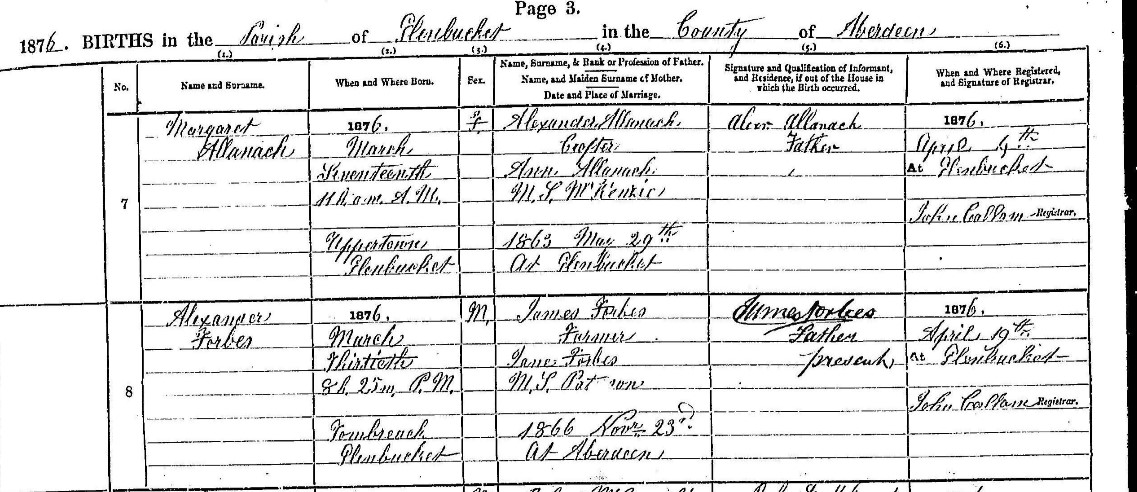 Page 3.
1876. BIRTHS in the Parish of Glenbucket in the County of Aberdeen
(1.) (2.) (3.) (4.) (5.) (6.)
No. Name and Surname. When and Where Born. Sex. Name, Surname, & Rank or Profession of Father. Name, and Maiden Surname of Mother. Date and Place of Marriage. Signature and Qualification of Informant, and Residence, if out of the House in which the Birth occurred. When and Where Registered, and Signature of Registrar.
7
Margaret
Allanach
1876.
March
Seventeenth
A.M.
Uppertown
Glenbucket
F.
Alexander Allanach
Crofter
Ann Allanach
M.S. McKenzie
1863 May 29th
At Glenbucket
Alexr Allanach
Father
1876.
April
At Glenbucket
John Callam Registrar.
8
Alexander
Forbes
1876.
March
Thirtieth
8h. 25m. P.M.
Tombreack
Glenbucket
M.
James Forbes
Farmer
Jane Forbes
M.S.
1866 Novr 23rd
At Aberdeen
James Forbes
Father
present
1876.
April 19th
At Glenbucket
John Callam Registrar.